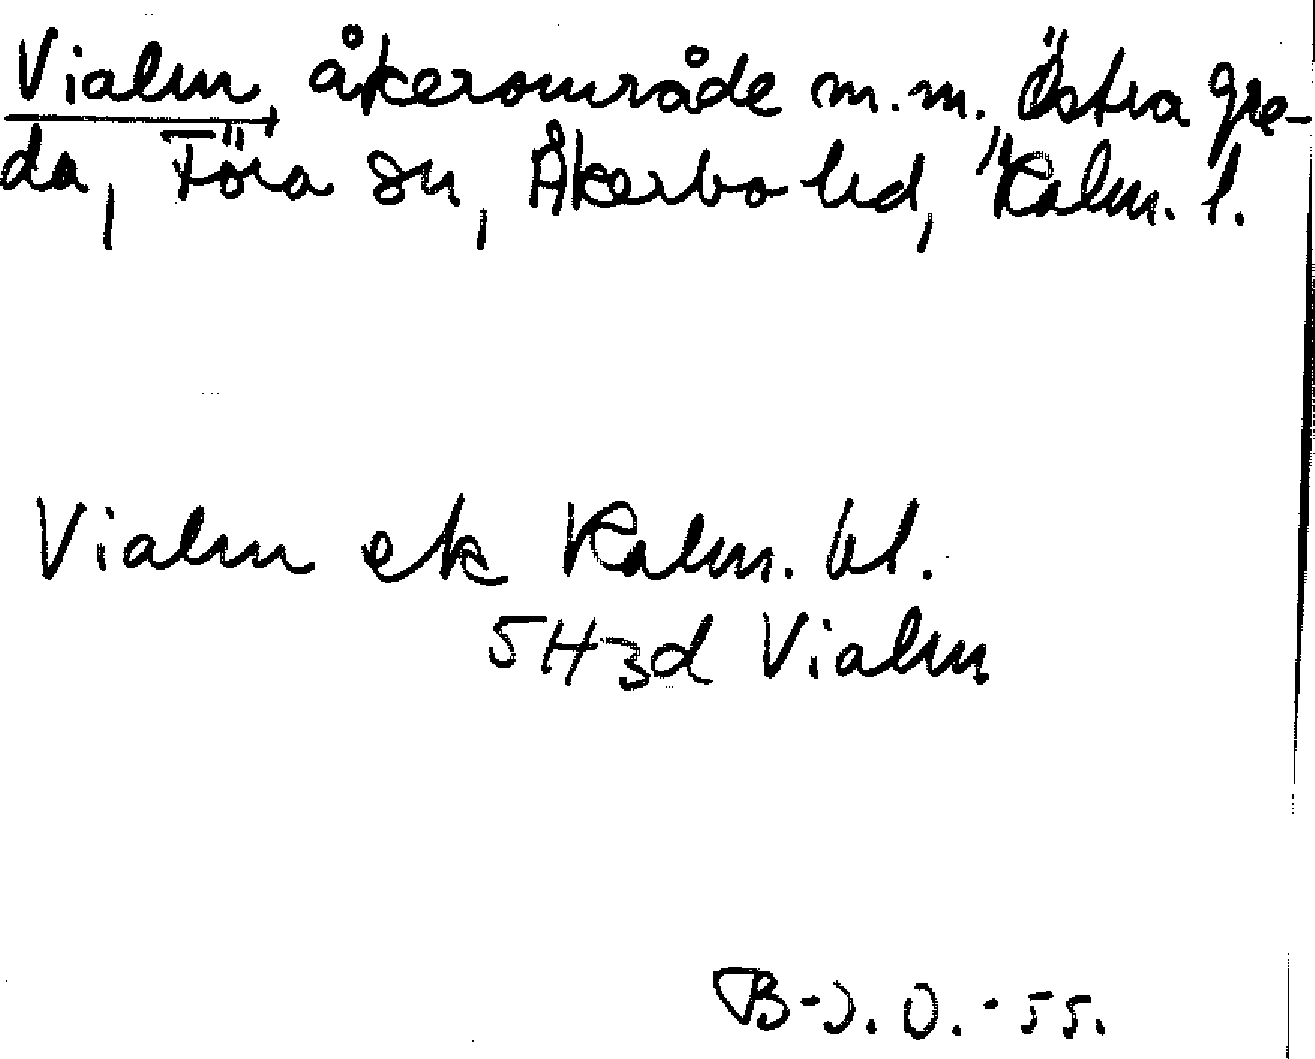 Vialm, åkerområde m.m. Östra Gre-
da, Föra sn, Åkerbo hd, Kalm. l.
Vialm ek Kalm. bl.
5H3d Vialm
B-J. O. - 55.